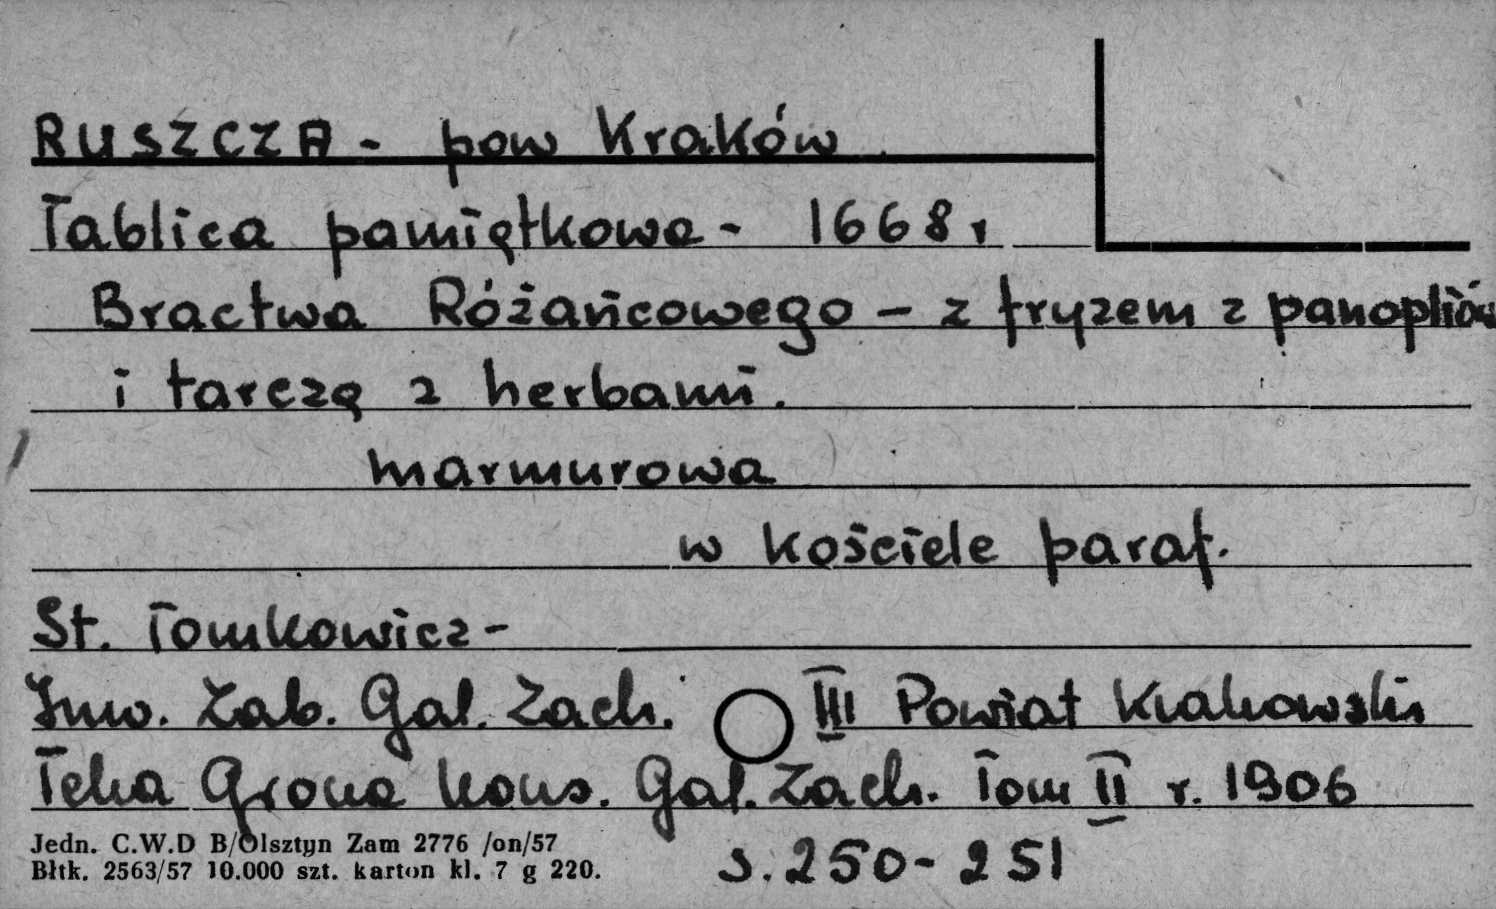 RUSZCZA - pow Kraków
Tablica pamiątkowa - 1668 r
Bractwa Różańcowego - z fryzem z panopliów
i tarczą z herbami.
marmurowa
w kościele paraf.
St. Tomkowicz -
Inw. Zab. Gal. Zach. III Powiat Krakowski
Teka Grona Kons. Gal. Zach. Tom II r. 1906
s. 250-251
Jedn. C.W.D B/Olsztyn Zam 2776 /on/57
Błtk. 2563/57 10.000 szt. karton kl. 7 g 220.